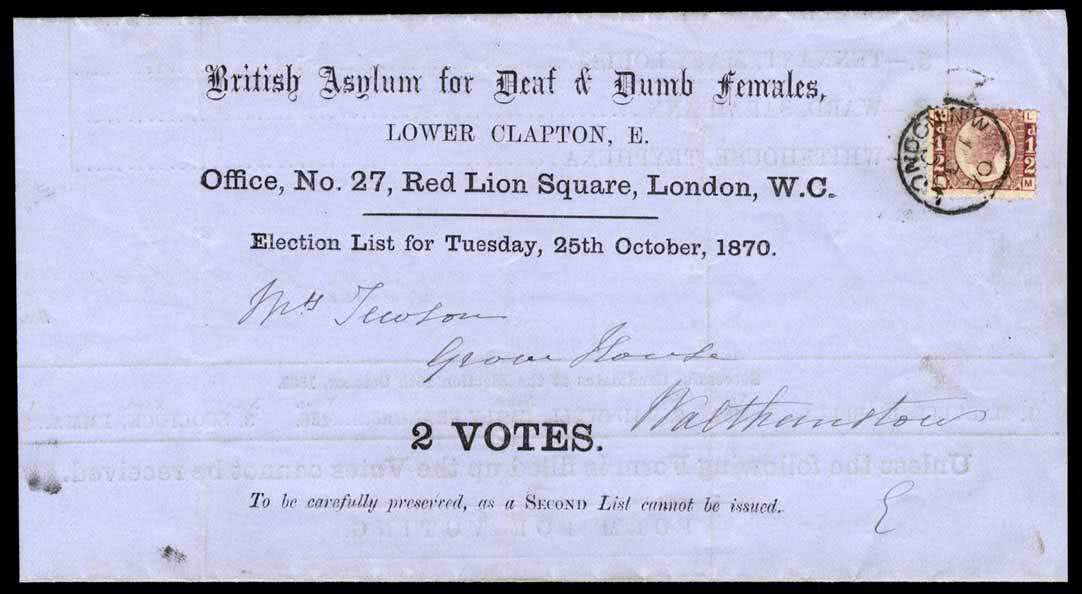 British Asylum for Deaf & Dumb Females,
LOWER CLAPTON, E.
Office, No. 27, Red Lion Square, London, W.C.
Election List for Tuesday, 25th October, 1870.
Mrs Tewson
Grove House
Walthamstow
2 VOTES.
To be carefully preserved, as a SECOND List cannot be issued.
E
LONDON N.W
L
M